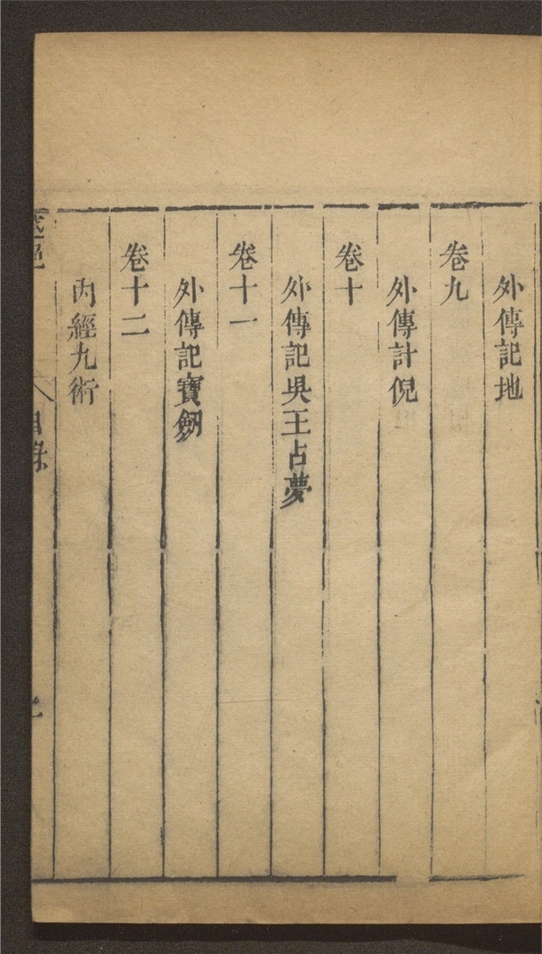 外傳記地
卷九
外傳計倪
卷十
外傳記吳王占夢
卷十一
外傳記寶劒
卷十二
內經九術
越絕
目錄